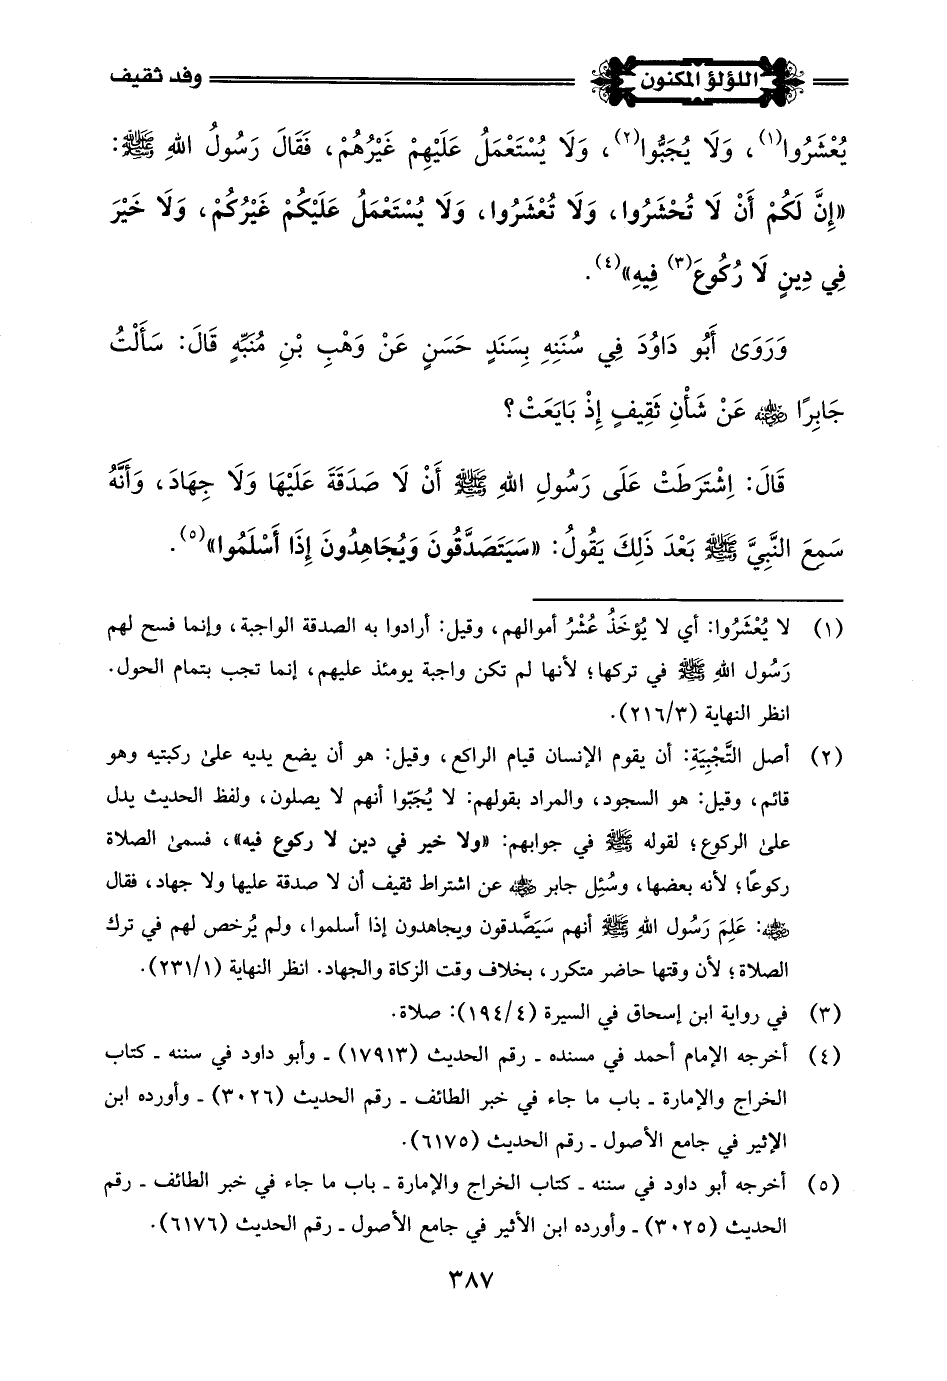 اللؤلؤ المكنون وفد ثقيف
يُعْشَرُوا(١)، وَلَا يُجَبُّوا(٢)، وَلَا يُسْتَعْمَلُ عَلَيْهِمْ غَيْرُهُمْ، فَقَالَ رَسُولُ اللهِ ﷺ:
«إِنَّ لَكُمْ أَنْ لَا تُحْشَرُوا، وَلَا تُعْشَرُوا، وَلَا يُسْتَعْمَلُ عَلَيْكُمْ غَيْرُكُمْ، وَلَا خَيْرَ
فِي دِينٍ لَا رُكُوعَ(٣) فِيهِ»(٤).
وَرَوَىٰ أَبُو دَاوُدَ فِي سُنَنِهِ بِسَنَدٍ حَسَنٍ عَنْ وَهْبِ بْنِ مُنَبِّهٍ قَالَ: سَأَلْتُ
جَابِرًا رضي الله عنه عَنْ شَأْنِ ثَقِيفٍ إِذْ بَايَعَتْ؟
قَالَ: اِشْتَرَطَتْ عَلَى رَسُولِ اللهِ ﷺ أَنْ لَا صَدَقَةَ عَلَيْهَا وَلَا جِهَادَ، وَأَنَّهُ
سَمِعَ النَّبِيَّ ﷺ بَعْدَ ذَلِكَ يَقُولُ: «سَيَتَصَدَّقُونَ وَيُجَاهِدُونَ إِذَا أَسْلَمُوا»(٥).
(١) لا يُعْشَرُوا: أي لا يُؤخَذُ عُشْرُ أموالهم، وقيل: أرادوا به الصدقة الواجبة، وإنما فسح لهم
رَسُول اللهِ ﷺ في تركها؛ لأنها لم تكن واجبة يومئذ عليهم، إنما تجب بتمام الحول.
انظر النهاية (٢١٦/٣).
(٢) أصل التَّجْبِيَةِ: أن يقوم الإنسان قيام الراكع، وقيل: هو أن يضع يديه علىٰ ركبتيه وهو
قائم، وقيل: هو السجود، والمراد بقولهم: لا يُجَبّوا أنهم لا يصلون، ولفظ الحديث يدل
علىٰ الركوع؛ لقوله ﷺ في جوابهم: «ولا خير في دين لا ركوع فيه»، فسمىٰ الصلاة
ركوعًا؛ لأنه بعضها، وسُئِل جابر رضي الله عنه عن اشتراط ثقيف أن لا صدقة عليها ولا جهاد، فقال
رضي الله عنه: عَلِمَ رَسُول اللهِ ﷺ أنهم سَيَصَّدقون ويجاهدون إذا أسلموا، ولم يُرخص لهم في ترك
الصلاة؛ لأن وقتها حاضر متكرر، بخلاف وقت الزكاة والجهاد. انظر النهاية (٢٣١/١).
(٣) في رواية ابن إسحاق في السيرة (١٩٤/٤): صلاة.
(٤) أخرجه الإمام أحمد في مسنده ـ رقم الحديث (١٧٩١٣) ـ وأبو داود في سننه ـ كتاب
الخراج والإمارة ـ باب ما جاء في خبر الطائف ـ رقم الحديث (٣٠٢٦) ـ وأورده ابن
الإثير في جامع الأصول ـ رقم الحديث (٦١٧٥).
(٥) أخرجه أبو داود في سننه ـ كتاب الخراج والإمارة ـ باب ما جاء في خبر الطائف ـ رقم
الحديث (٣٠٢٥) ـ وأورده ابن الأثير في جامع الأصول ـ رقم الحديث (٦١٧٦).
٣٨٧